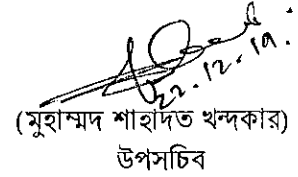 22.12.19.
(মুহাম্মদ শাহাদত খন্দকার)
উপসচিব